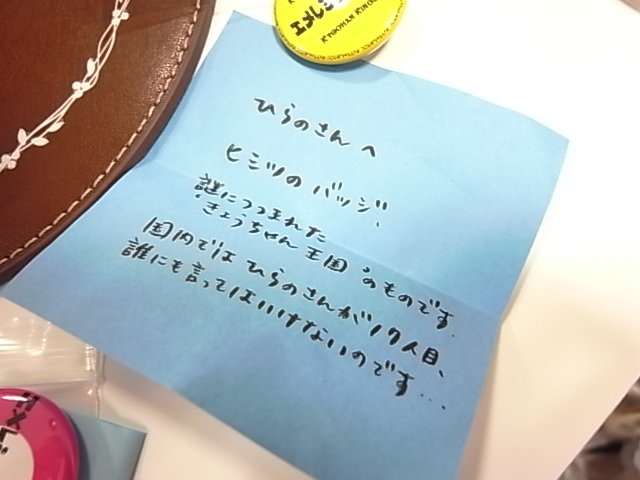 KYOCHAN KINGD
ひらのさんへ
ヒミツのバッジ、
謎につつまれた
"きょうちゃん王国"のものです。
国内ではひらのさんが17人目、
誰にも言ってはいけないのです…